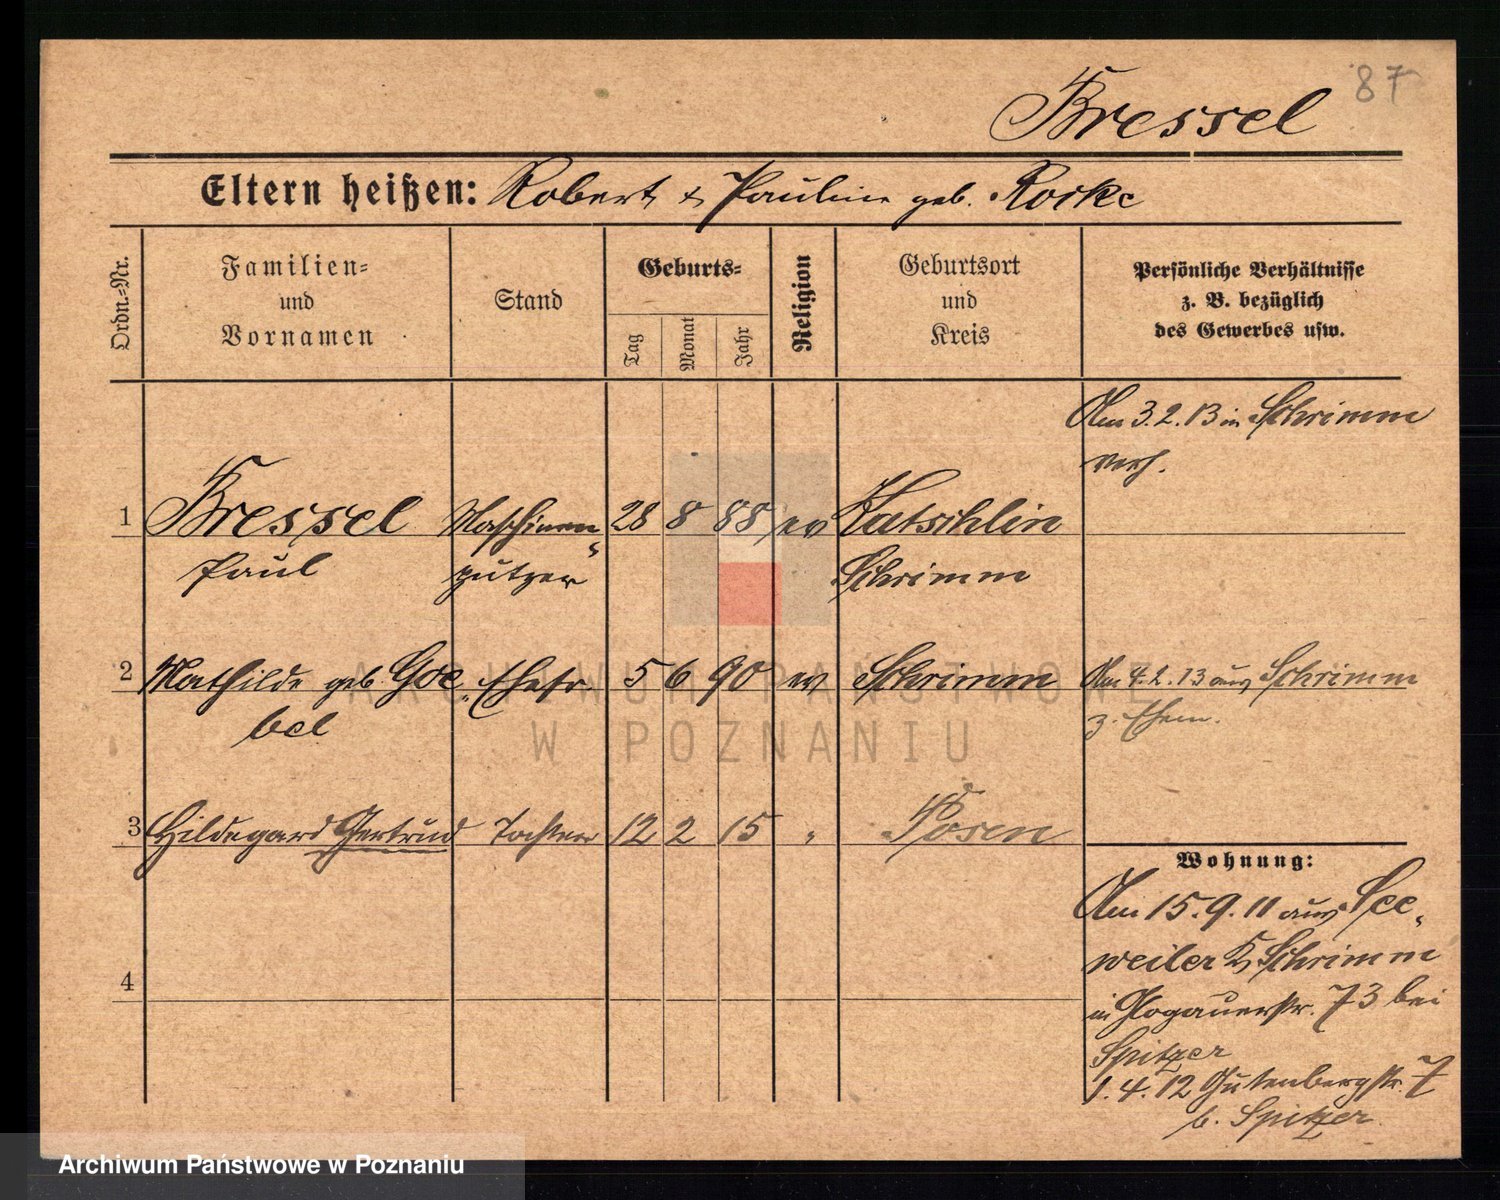 87
Bressel
Eltern heißen: Robert & Pauline geb. Roske
Ordn.-Nr.
Familien-
und
Vornamen
Stand
Geburts-
Tag
Monat
Jahr
Religion
Geburtsort
und
Kreis
Persönliche Verhältnisse
z. B. bezüglich
des Gewerbes usw.
Am 3.2.13 in Schrimm
verh.
1 Bressel Maschinen- 28 8 88 ev Katschlin
Paul putzer Schrimm
2 Mathilde geb. Goe- Ehefr. 5 6 90 ev Schrimm Am 4.2.13 aus Schrimm
bel z. Ehem.
3 Hildegard Gertrud Tochter 12 2 15 " Posen
Wohnung:
Am 15.9.11 aus See-
weiler K Schrimm
4
in Glogauerstr. 73 bei
Spitzer
1.4.12 Gutenbergstr. 7
b. Spitzer
ARCHIWUM PAŃSTWOWE
W POZNANIU
Archiwum Państwowe w Poznaniu